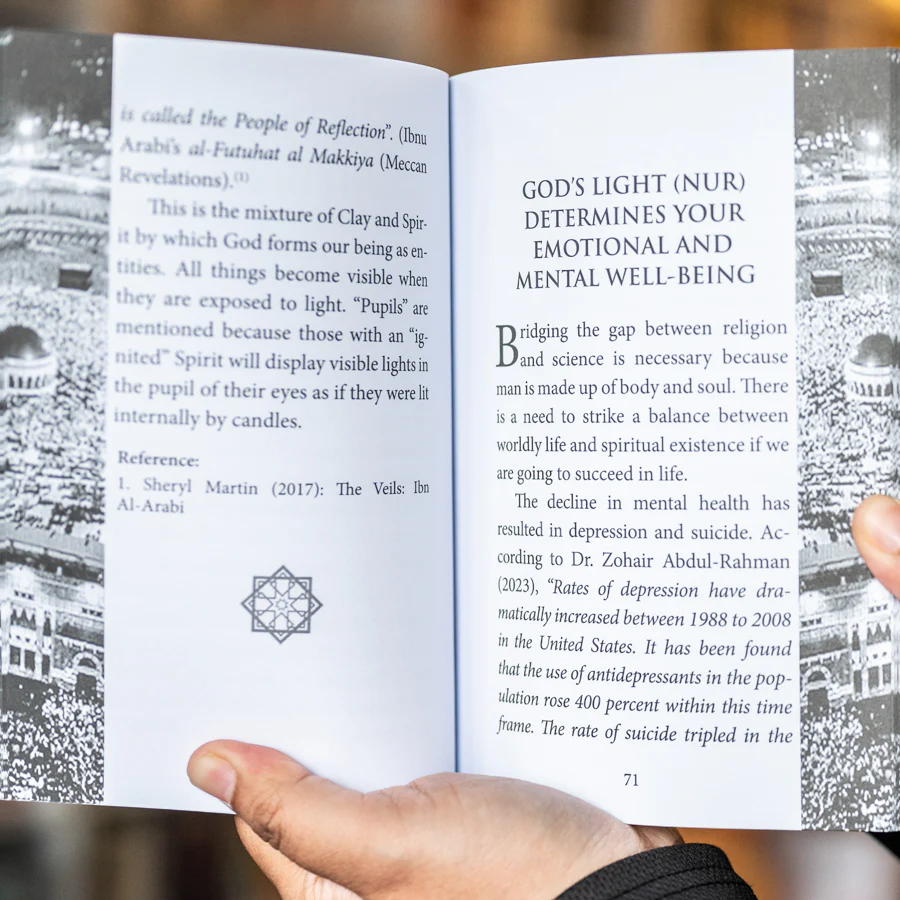 is called the People of Reflection”. (Ibnu
Arabi’s al-Futuhat al Makkiya (Meccan
Revelations).(1)
This is the mixture of Clay and Spir-
it by which God forms our being as en-
tities. All things become visible when
they are exposed to light. “Pupils” are
mentioned because those with an “ig-
nited” Spirit will display visible lights in
the pupil of their eyes as if they were lit
internally by candles.
Reference:
1. Sheryl Martin (2017): The Veils: Ibn
Al-Arabi
GOD’S LIGHT (NUR)
DETERMINES YOUR
EMOTIONAL AND
MENTAL WELL-BEING
Bridging the gap between religion
and science is necessary because
man is made up of body and soul. There
is a need to strike a balance between
worldly life and spiritual existence if we
are going to succeed in life.
The decline in mental health has
resulted in depression and suicide. Ac-
cording to Dr. Zohair Abdul-Rahman
(2023), “Rates of depression have dra-
matically increased between 1988 to 2008
in the United States. It has been found
that the use of antidepressants in the pop-
ulation rose 400 percent within this time
frame. The rate of suicide tripled in the
71